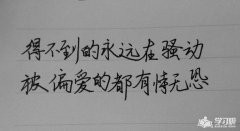 得不到的永远在骚动
被偏爱的都有恃无恐
学习吧